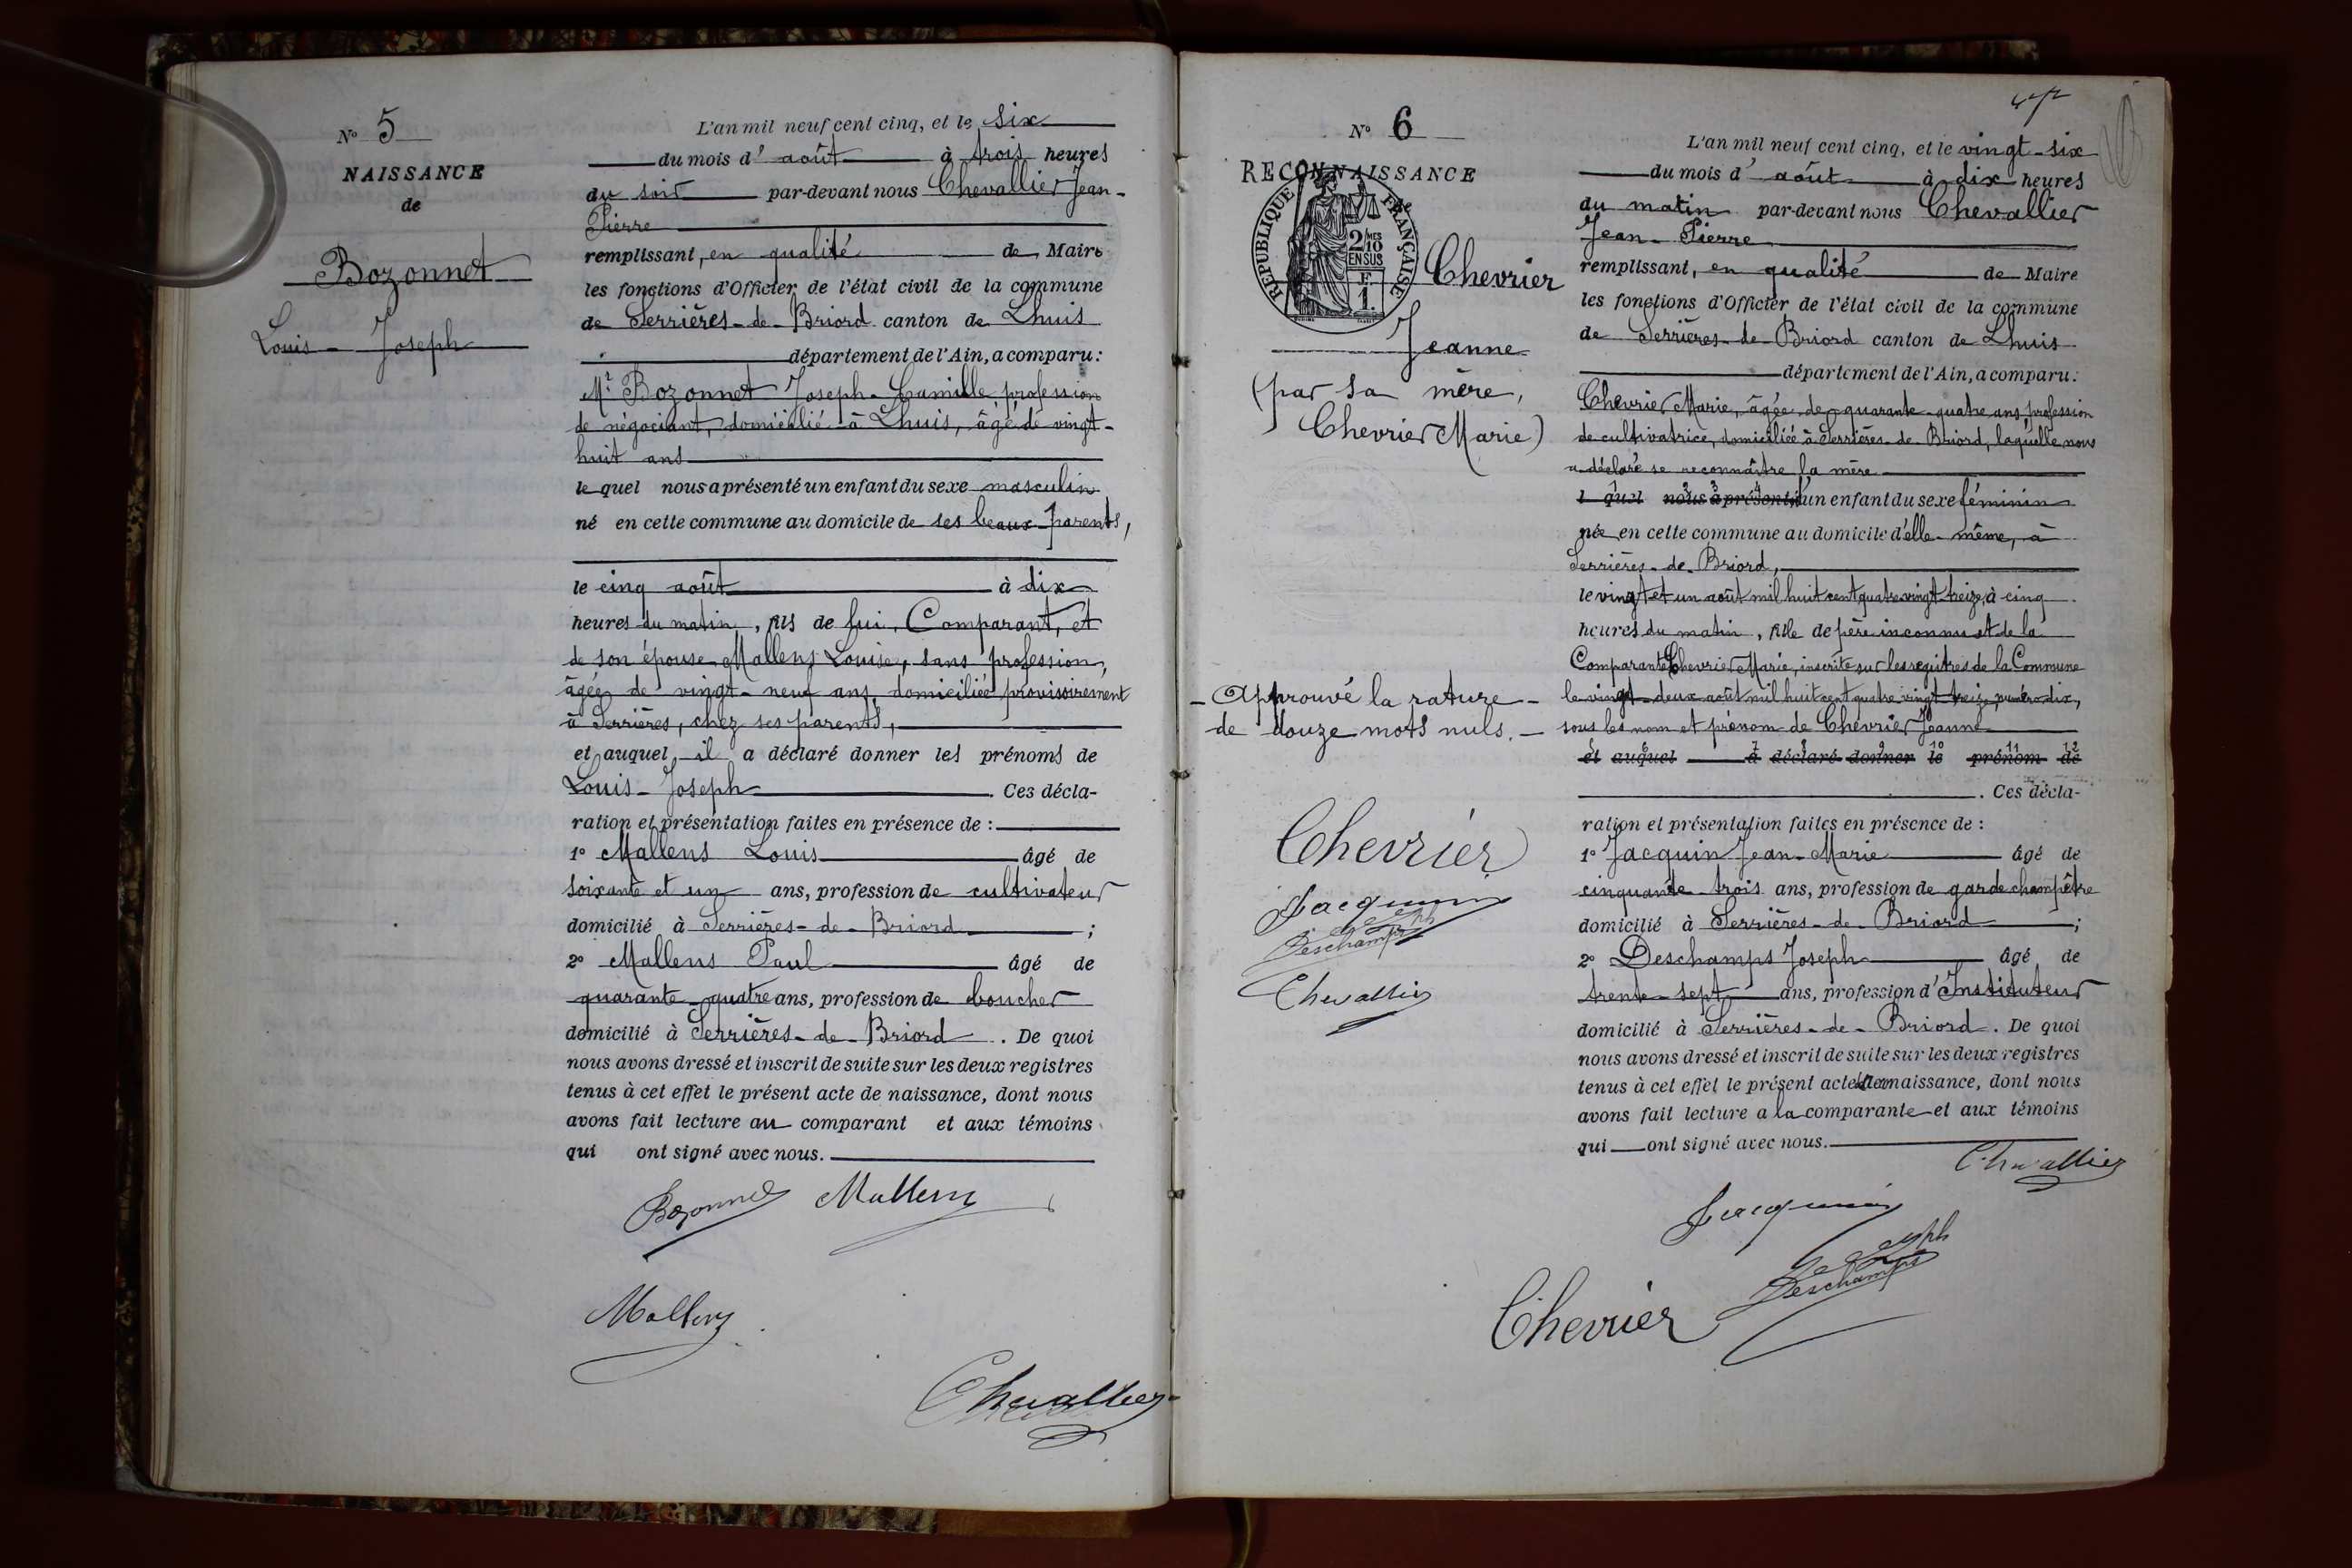 N° 5
NAISSANCE
de
Bozonnet
Louis - Joseph
L'an mil neuf cent cinq, et le six
du mois d'août à trois heures
du soir par-devant nous Chevallier Jean-
Pierre
remplissant, en qualité de Maire
les fonctions d'Officier de l'état civil de la commune
de Serrières-de-Briord canton de Lhuis
département de l'Ain, a comparu:
Mr Bozonnet Joseph-Camille profession
de négociant, domicilié à Lhuis, âgé de vingt-
huit ans
lequel nous a présenté un enfant du sexe masculin
né en cette commune au domicile de ses beaux-parents,
le cinq août à dix
heures du matin, fils de lui, Comparant, et
de son épouse Mallens Louise, sans profession,
âgée de vingt-neuf ans, domiciliée provisoirement
à Serrières, chez ses parents,
et auquel il a déclaré donner les prénoms de
Louis-Joseph. Ces décla-
ration et présentation faites en présence de :
1° Mallens Louis âgé de
soixante et un ans, profession de cultivateur
domicilié à Serrières-de-Briord ;
2° Mallens Paul âgé de
quarante-quatre ans, profession de boucher
domicilié à Serrières-de-Briord. De quoi
nous avons dressé et inscrit de suite sur les deux registres
tenus à cet effet le présent acte de naissance, dont nous
avons fait lecture au comparant et aux témoins
qui ont signé avec nous.
Bozonnet Mallens
Mallens
Chevallier
N° 6
RECONNAISSANCE
de
RÉPUBLIQUE FRANÇAISE
2/10 MES
EN SUS
F.
1.
Chevrier
Jeanne
(par sa mère,
Chevrier Marie)
- Approuvé la rature -
de douze mots nuls. -
Chevrier
Jacquin
Joseph
Deschamps
Chevallier
L'an mil neuf cent cinq, et le vingt-six
du mois d'août à dix heures
du matin par-devant nous Chevallier
Jean-Pierre
remplissant, en qualité de Maire
les fonctions d'Officier de l'état civil de la commune
de Serrières-de-Briord canton de Lhuis
département de l'Ain, a comparu:
Chevrier Marie, âgée de quarante-quatre ans, profession
de cultivatrice, domiciliée à Serrières-de-Briord, laquelle nous
a déclaré se reconnaître la mère
l quel nous a présenté d'un enfant du sexe féminin
née en cette commune au domicile d'elle-même, à
Serrières-de-Briord,
le vingt et un août mil huit cent quatre vingt-treize, à cinq
heures du matin, fille de père inconnu et de la
Comparante Chevrier Marie, inscrite sur les registres de la Commune
le vingt-deux août mil huit cent quatre vingt treize, numéro dix,
sous les nom et prénom de Chevrier Jeanne
et auquel a déclaré donner le prénom de
. Ces décla-
ration et présentation faites en présence de :
1° Jacquin Jean-Marie âgé de
cinquante-trois ans, profession de garde champêtre
domicilié à Serrières-de-Briord ;
2° Deschamps Joseph âgé de
trente-sept ans, profession d'Instituteur
domicilié à Serrières-de-Briord. De quoi
nous avons dressé et inscrit de suite sur les deux registres
tenus à cet effet le présent acte de naissance, dont nous
avons fait lecture a la comparante et aux témoins
qui ont signé avec nous.
Chevallier
Jacquin
Joseph
Deschamps
Chevrier